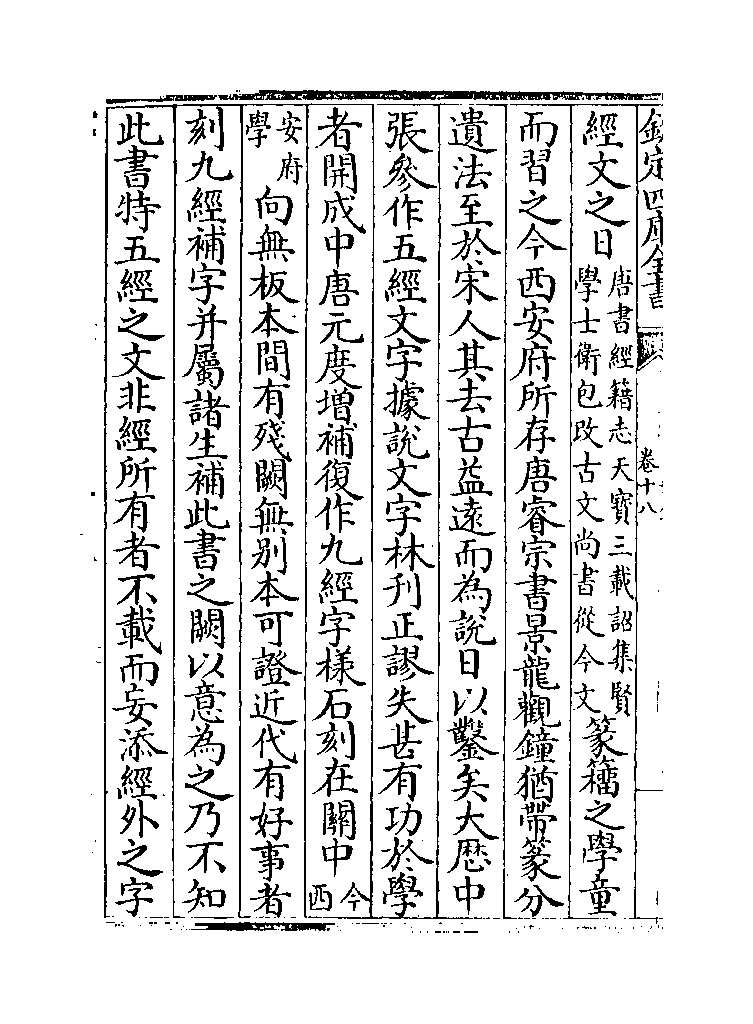 欽定四庫全書
卷十八
經文之日唐書經籍志天寶三載詔集賢學士衛包改古文尚書從今文篆籀之學童
而習之今西安府所存唐睿宗書景龍觀鐘猶帶篆分
遺法至於宋人其去古益遠而為說日以鑿矣大厯中
張參作五經文字據說文字林刋正謬失甚有功於學
者開成中唐元度增補復作九經字樣石刻在關中今西
安府學向無板本間有殘闕無别本可證近代有好事者
刻九經補字并屬諸生補此書之闕以意為之乃不知
此書特五經之文非經所有者不載而妄添經外之字